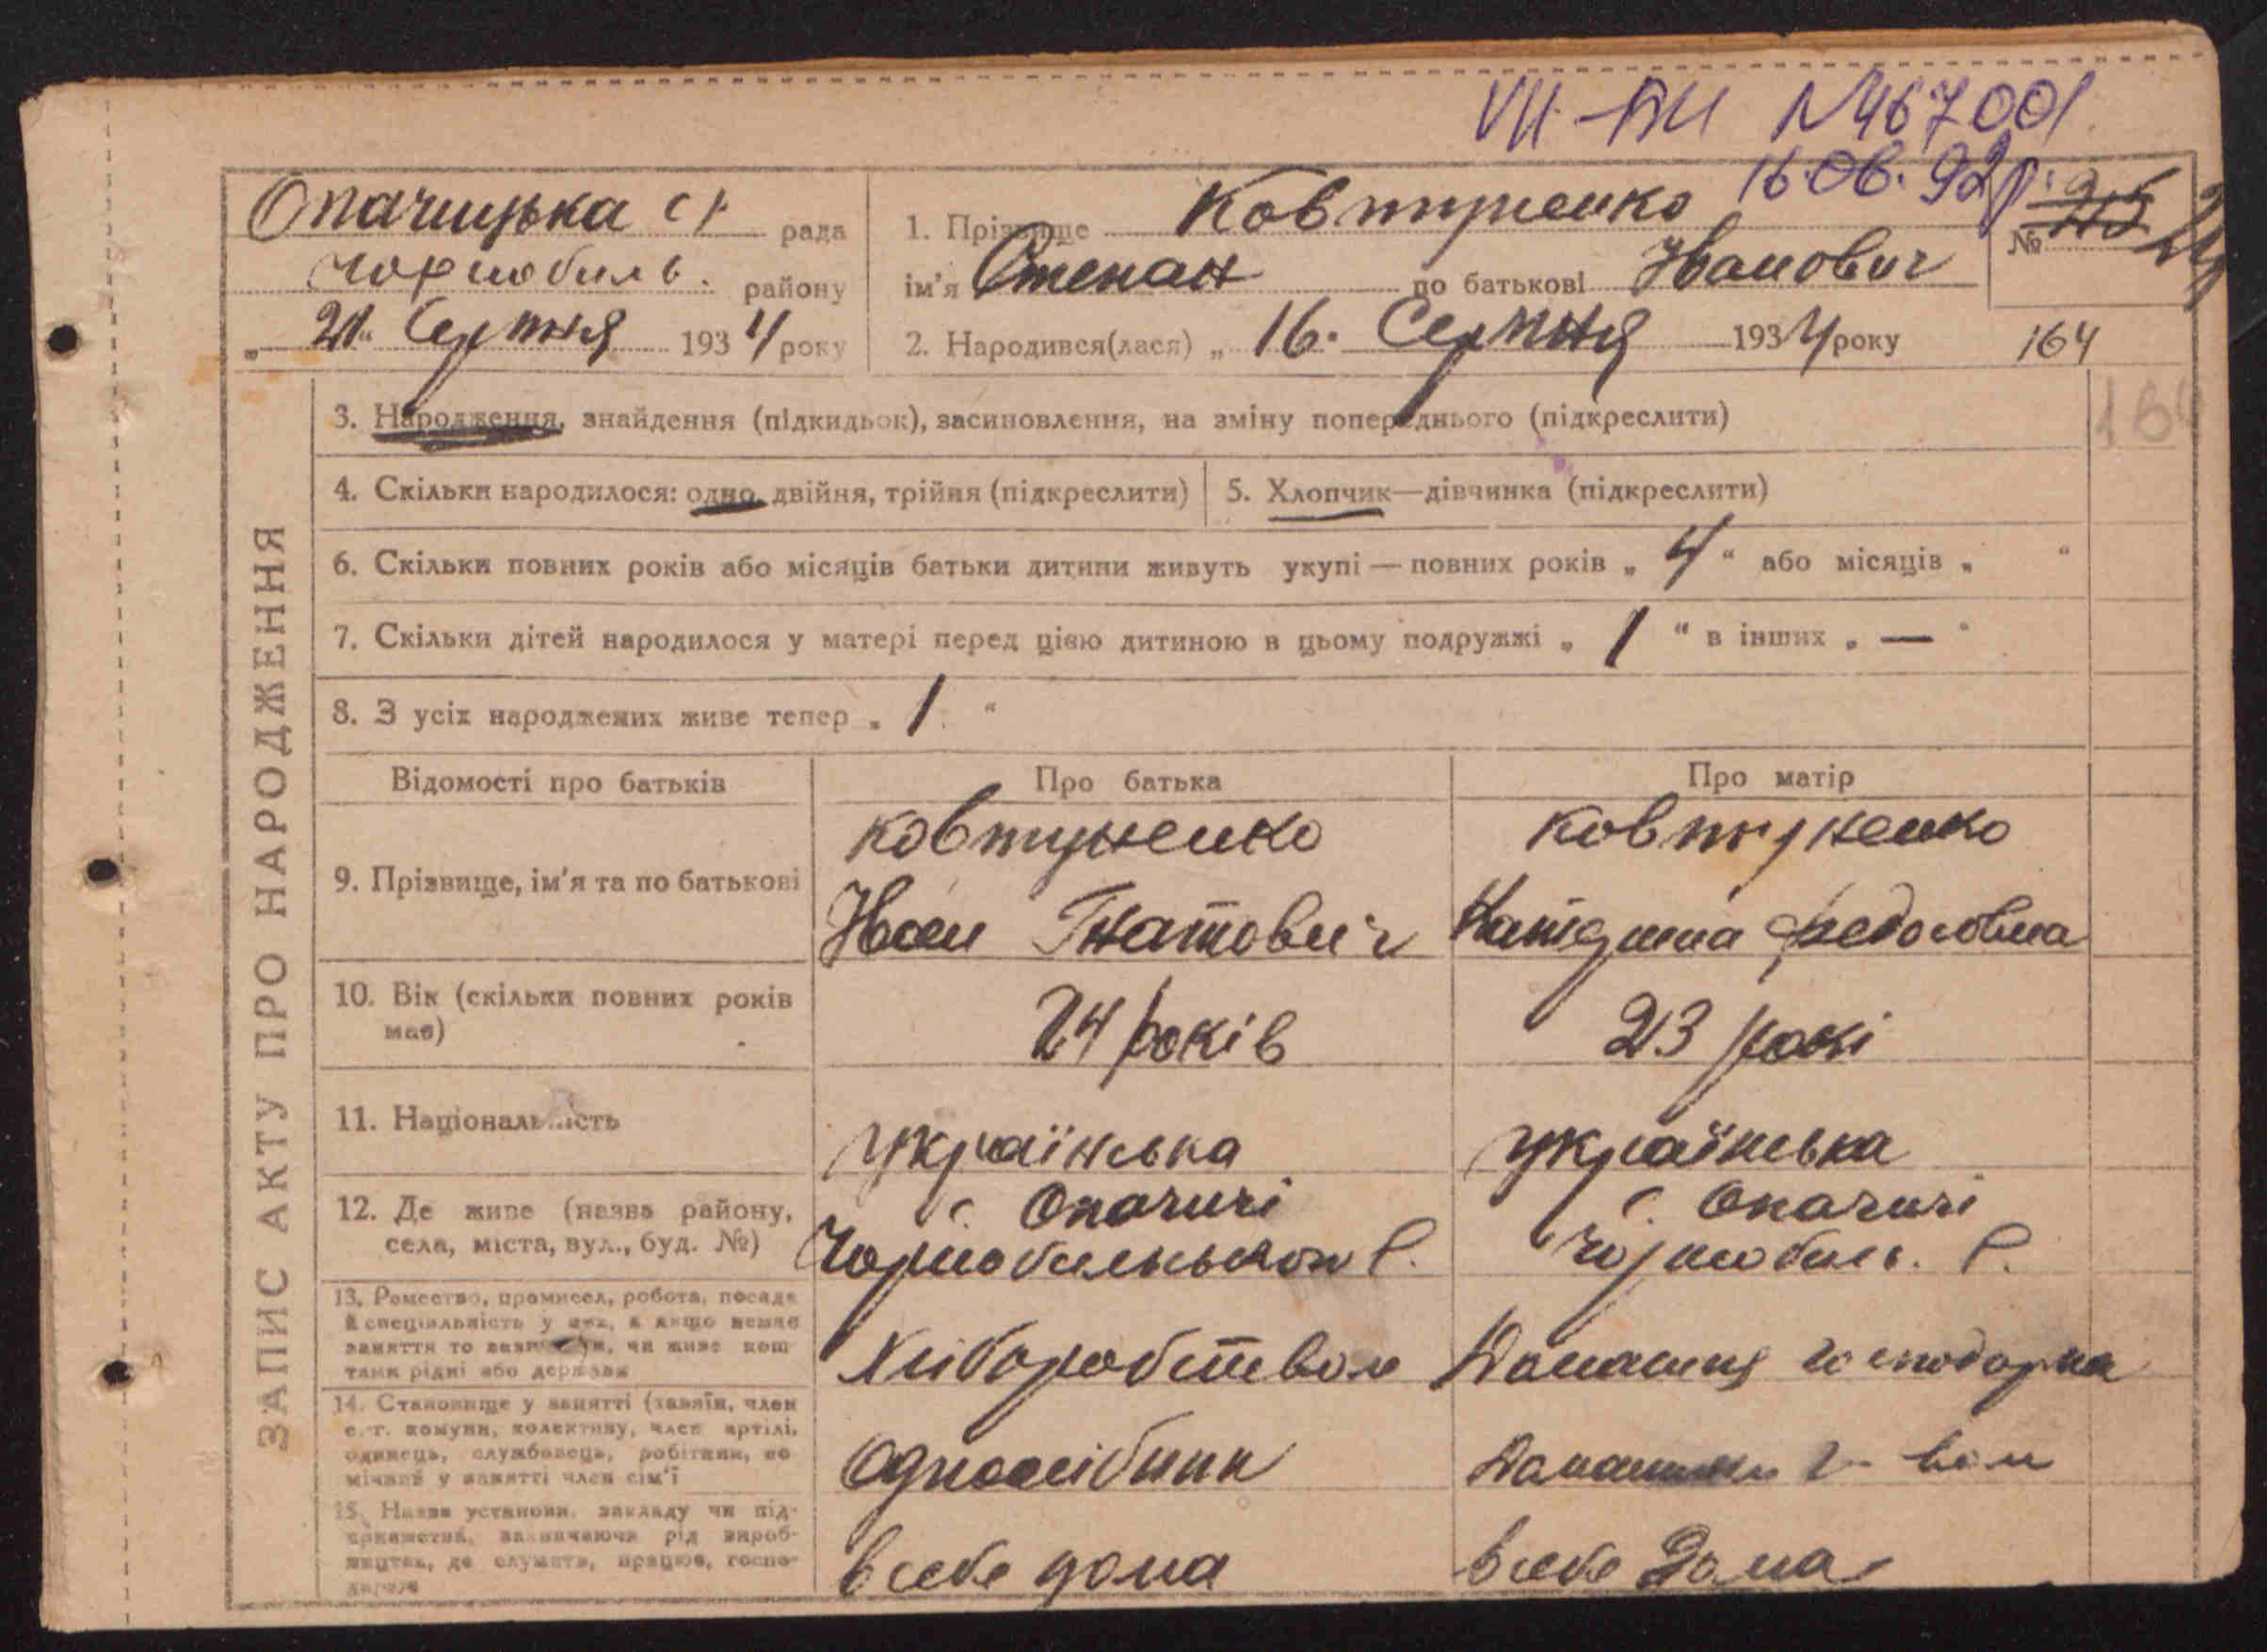 VII-БК №467001
16.06.92р.
Опачицька с/ рада
Чорнобиль. району
„21“ Серпня 1934 року
1. Прізвище Ковтуненко
ім'я Степан по батькові Іванович
№
2. Народився(лася) „16. Серпня 1934 року
164
3. Народження, знайдення (підкидьок), засиновлення, на зміну попереднього (підкреслити)
4. Скільки народилося: одно, двійня, трійня (підкреслити)
5. Хлопчик—дівчинка (підкреслити)
6. Скільки повних років або місяців батьки дитини живуть укупі — повних років „4“ або місяців „ “
7. Скільки дітей народилося у матері перед цією дитиною в цьому подружжі „1“ в інших „—“
8. З усіх народжених живе тепер „1“
ЗАПИС АКТУ ПРО НАРОДЖЕННЯ
Відомості про батьків
Про батька
Про матір
9. Прізвище, ім'я та по батькові
Ковтуненко
Іван Гнатович
Ковтуненко
Федоровна
10. Вік (скільки повних років
має)
24 років
23 рокі
11. Національність
українська
українська
12. Де живе (назва району,
села, міста, вул., буд. №)
с. Опачичі
Чорнобильського Р.
с. Опачичі
Чорнобиль. Р.
13. Ремество, промисел, робота, посада
й спеціальність у них, а якщо немає
заняття то зазначити, чи живе кош
тами рідні або держави
Хліборобством
Домашня господарка
14. Становище у занятті (хазяїн, член
с.-г. комуни, колективу, член артілі,
одинець, службовець, робітник, по
мічний у занятті член сім'ї
Одноосібник
15. Назва установи, закладу чи під-
приємства, зазначаючи рід вироб-
ництва, де служить, працює, госпо-
дарює
в себе дома
в себе дома